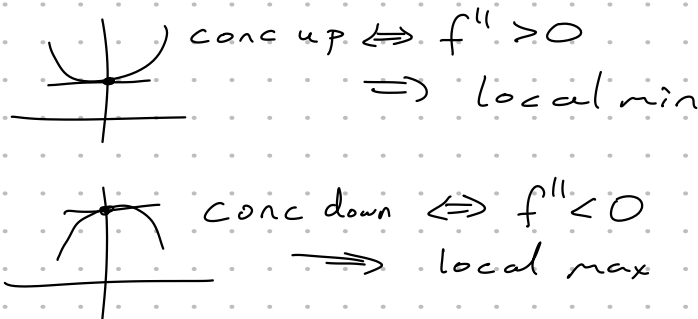 conc up ⇔ f'' > 0
⇒ local min
conc down ⇔ f'' < 0
⇒ local max